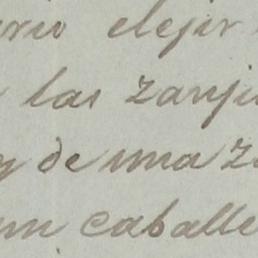 elejir
las zanji
de una z
un caballe